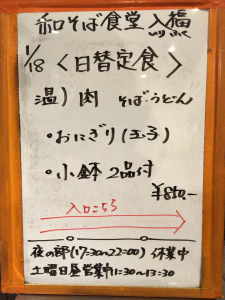 和そば食堂 入福
1/18 <日替定食>
温) 肉 そば・うどん
・おにぎり(玉子)
・小鉢 2品付
¥850-
入口こちら
夜の部(17:30~22:00) 休業中
土曜日昼営業中11:30~13:30